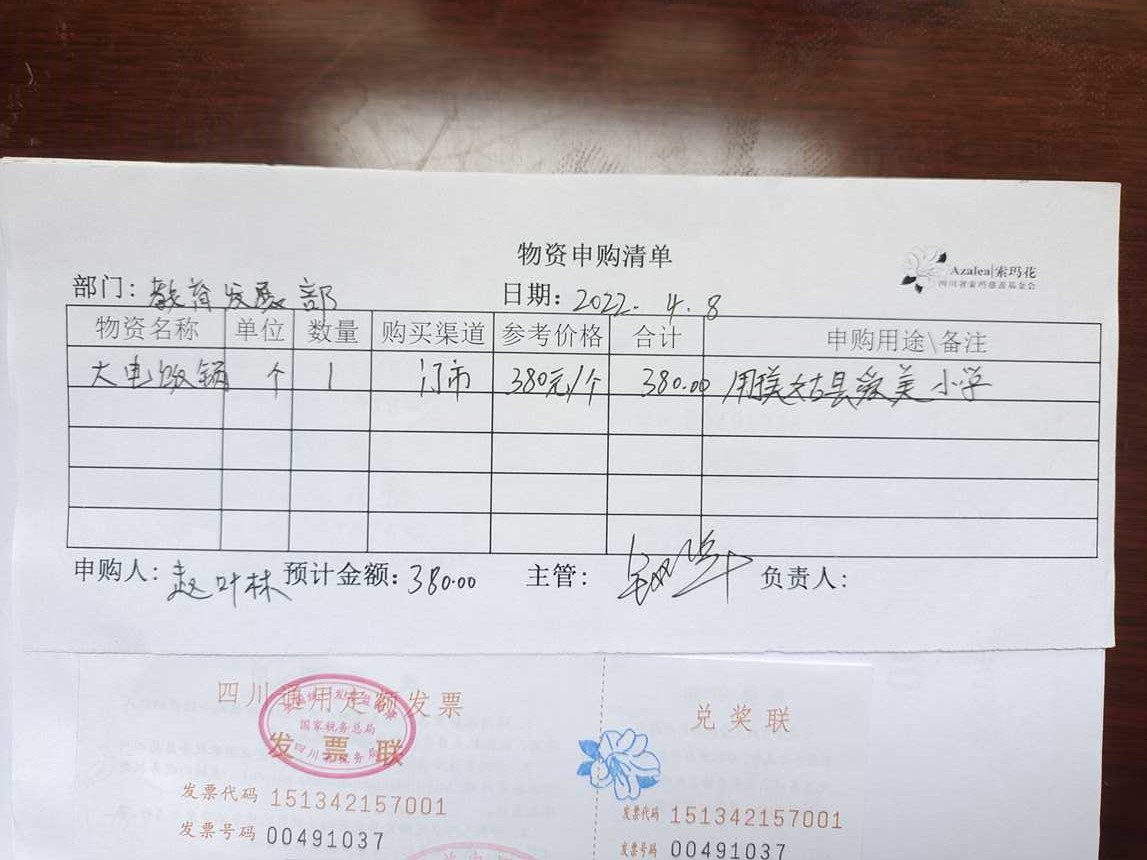 物资申购清单
Azalea|索玛花
四川省索玛慈善基金会
部门：教育发展部 日期：2022.4.8
物资名称 单位 数量 购买渠道 参考价格 合计 申购用途\备注
大电饭锅 个 1 门市 380元/个 380.00 用美姑县爱美小学
申购人：赵叶林 预计金额：380.00 主管： 负责人：
四川通用定额发票
国家税务总局
发票联
兑奖联
发票代码 151342157001
发票号码 00491037
发票代码 151342157001
发票号码 00491037